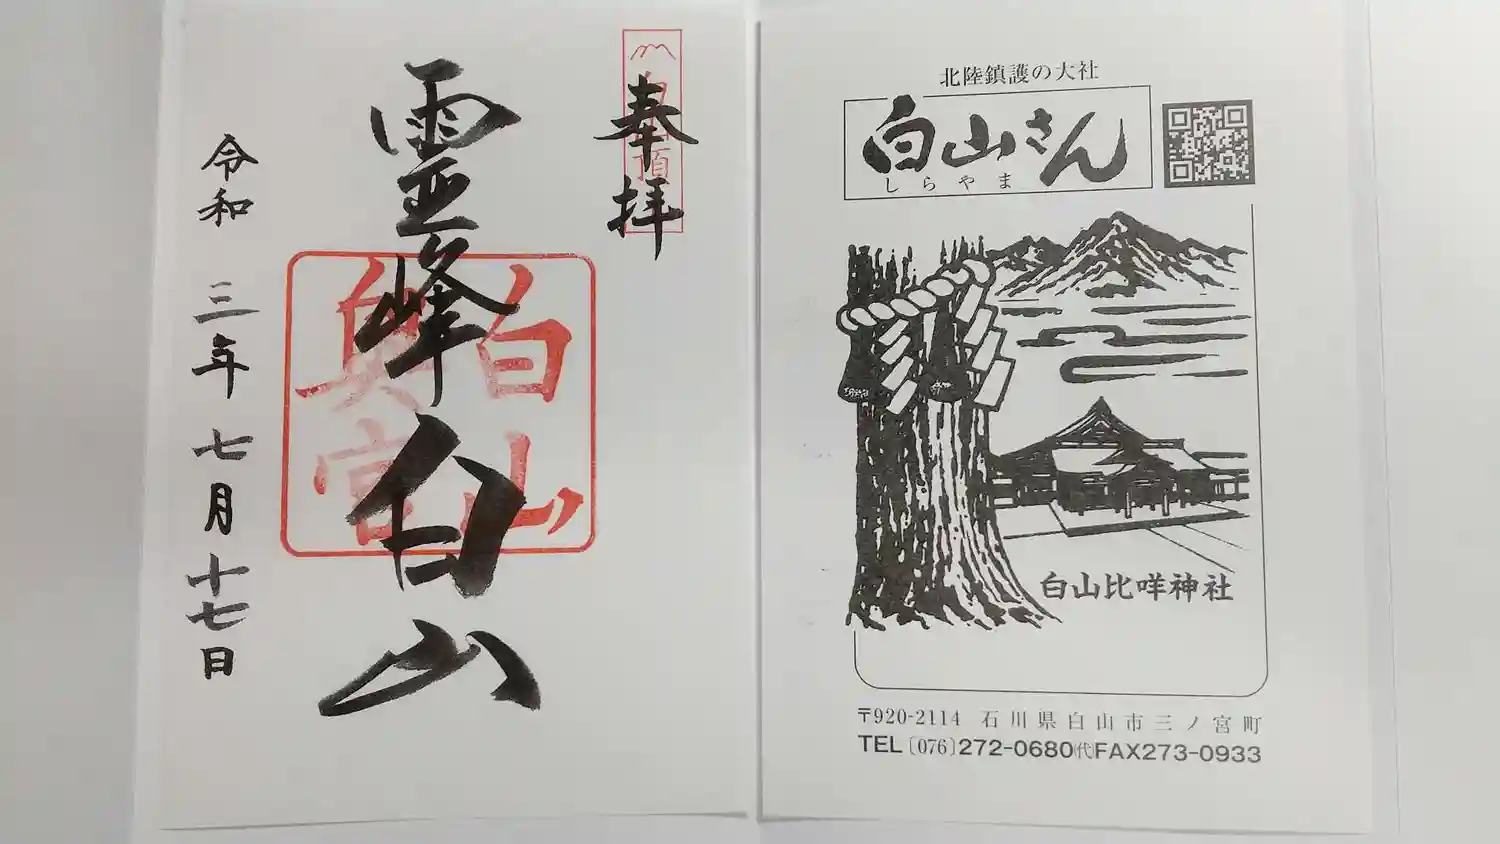 奉拝
霊峰白山
白山奥宮
令和三年七月十七日
北陸鎮護の大社
白山さん
しらやま
白山比咩神社
〒920-2114 石川県白山市三ノ宮町
TEL〔076〕272-0680㈹FAX273-0933